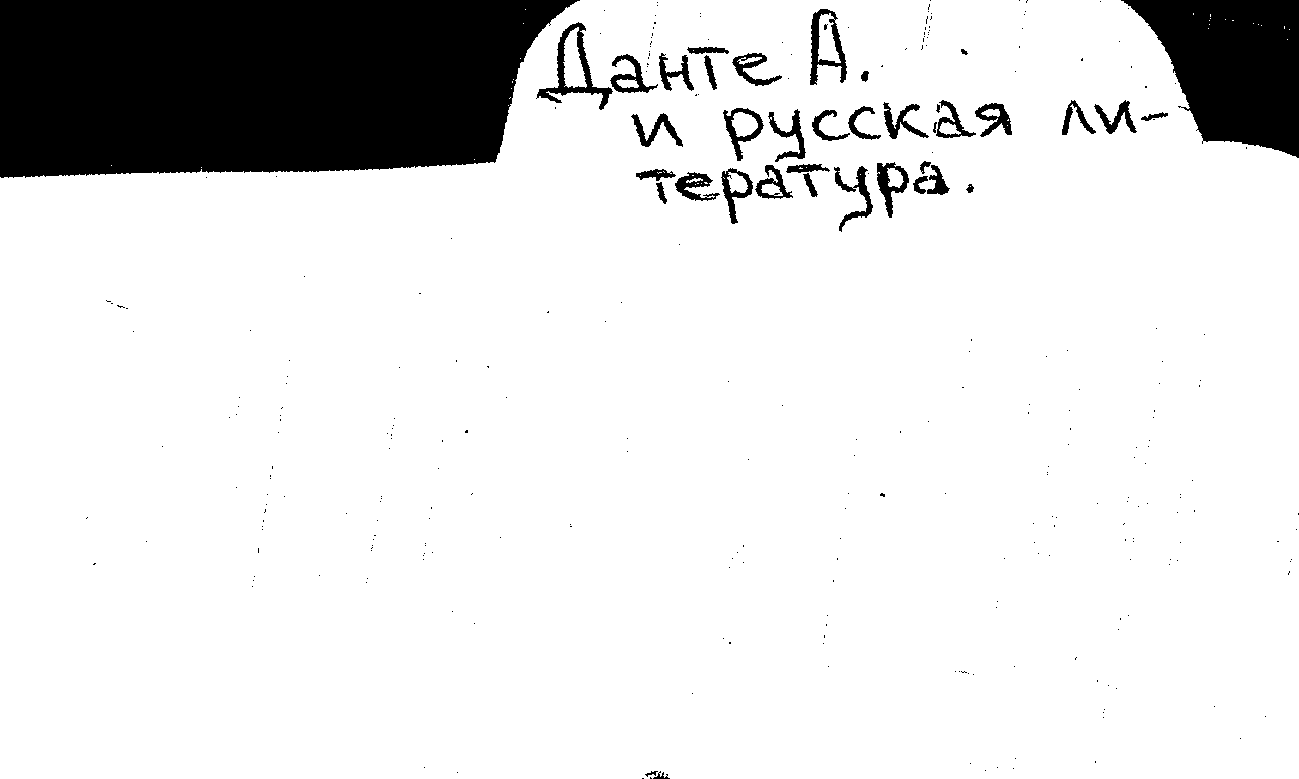 Данте А.
и русская ли-
тература.